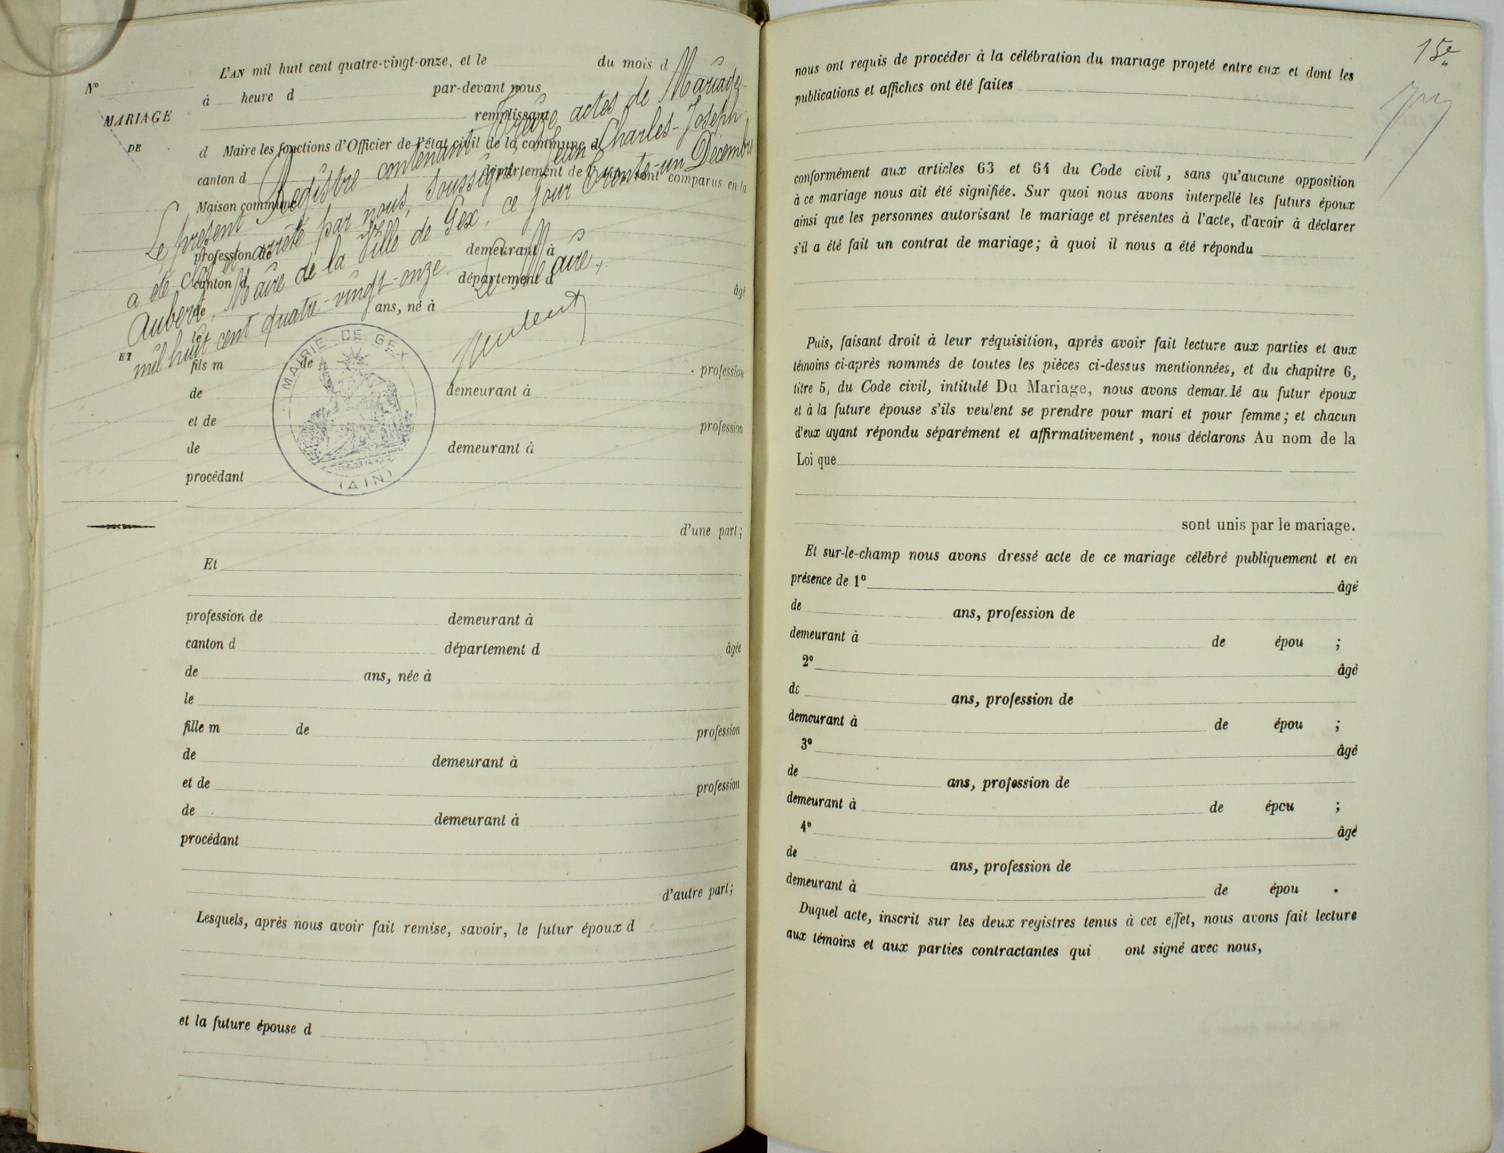 Nº
MARIAGE
DE
ET
L'AN mil huit cent quatre-vingt-onze, et le du mois d
à heure d par-devant nous
remplissant
d Maire les fonctions d'Officier de l'état civil de la commune d
canton d département de l'Ain, sont comparus en la
Maison commune
profession de demeurant à
canton d département d âgé
de ans, né à
le
fils m de profession
de demeurant à
et de profession
de demeurant à
procédant
d'une part;
Le présent Registre contenant treize actes de Mariage
a été clos et arrêté par nous, soussigné, Jean Charles-Joseph
Aubert, Maire de la Ville de Gex, ce jour trente-un Décembre
mil huit cent quatre-vingt-onze.
Le Maire,
MAIRIE DE GEX
(AIN)
Et
profession de demeurant à
canton d département d âgée
de ans, née à
le
fille m de profession
de demeurant à
et de profession
de demeurant à
procédant
d'autre part;
Lesquels, après nous avoir fait remise, savoir, le futur époux d
et la future épouse d
15e
nous ont requis de procéder à la célébration du mariage projeté entre eux et dont les
publications et affiches ont été faites
conformément aux articles 63 et 64 du Code civil, sans qu'aucune opposition
à ce mariage nous ait été signifiée. Sur quoi nous avons interpellé les futurs époux
ainsi que les personnes autorisant le mariage et présentes à l'acte, d'avoir à déclarer
s'il a été fait un contrat de mariage; à quoi il nous a été répondu
Puis, faisant droit à leur réquisition, après avoir fait lecture aux parties et aux
témoins ci-après nommés de toutes les pièces ci-dessus mentionnées, et du chapitre 6,
titre 5, du Code civil, intitulé Du Mariage, nous avons demandé au futur époux
et à la future épouse s'ils veulent se prendre pour mari et pour femme; et chacun
d'eux ayant répondu séparément et affirmativement, nous déclarons Au nom de la
Loi que
sont unis par le mariage.
Et sur-le-champ nous avons dressé acte de ce mariage célébré publiquement et en
présence de 1º âgé
de ans, profession de
demeurant à de épou ;
2º âgé
de ans, profession de
demeurant à de épou ;
3º âgé
de ans, profession de
demeurant à de épou ;
4º âgé
de ans, profession de
demeurant à de épou .
Duquel acte, inscrit sur les deux registres tenus à cet effet, nous avons fait lecture
aux témoins et aux parties contractantes qui ont signé avec nous,